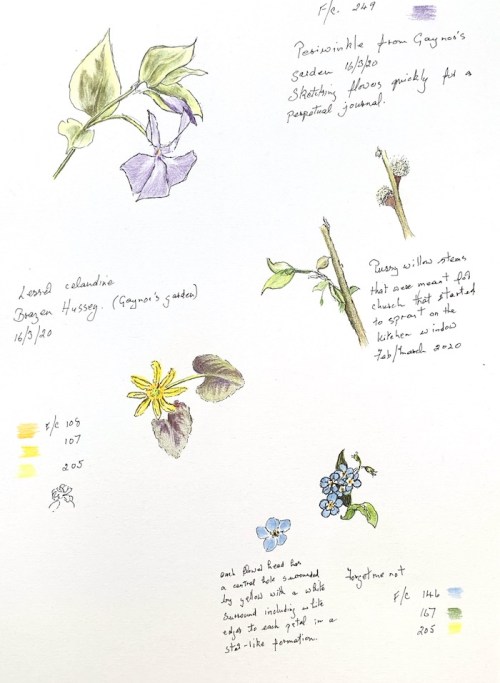 F/c. 249
Periwinkle from Gaynor's
garden 16/3/20
Sketching flowers quickly for a
perpetual journal.
Pussy willow stems
that were meant for
church that started
to sprout on the
kitchen window
Feb/March 2020
Lesser celandine
Brazen Hussey. (Gaynor's garden)
16/3/20
F/c 108
107
205
each flower head has
a central hole surrounded
by yellow with a white
surround including white
edges to each petal in a
star-like formation.
Forget me not
F/c 146
167
205